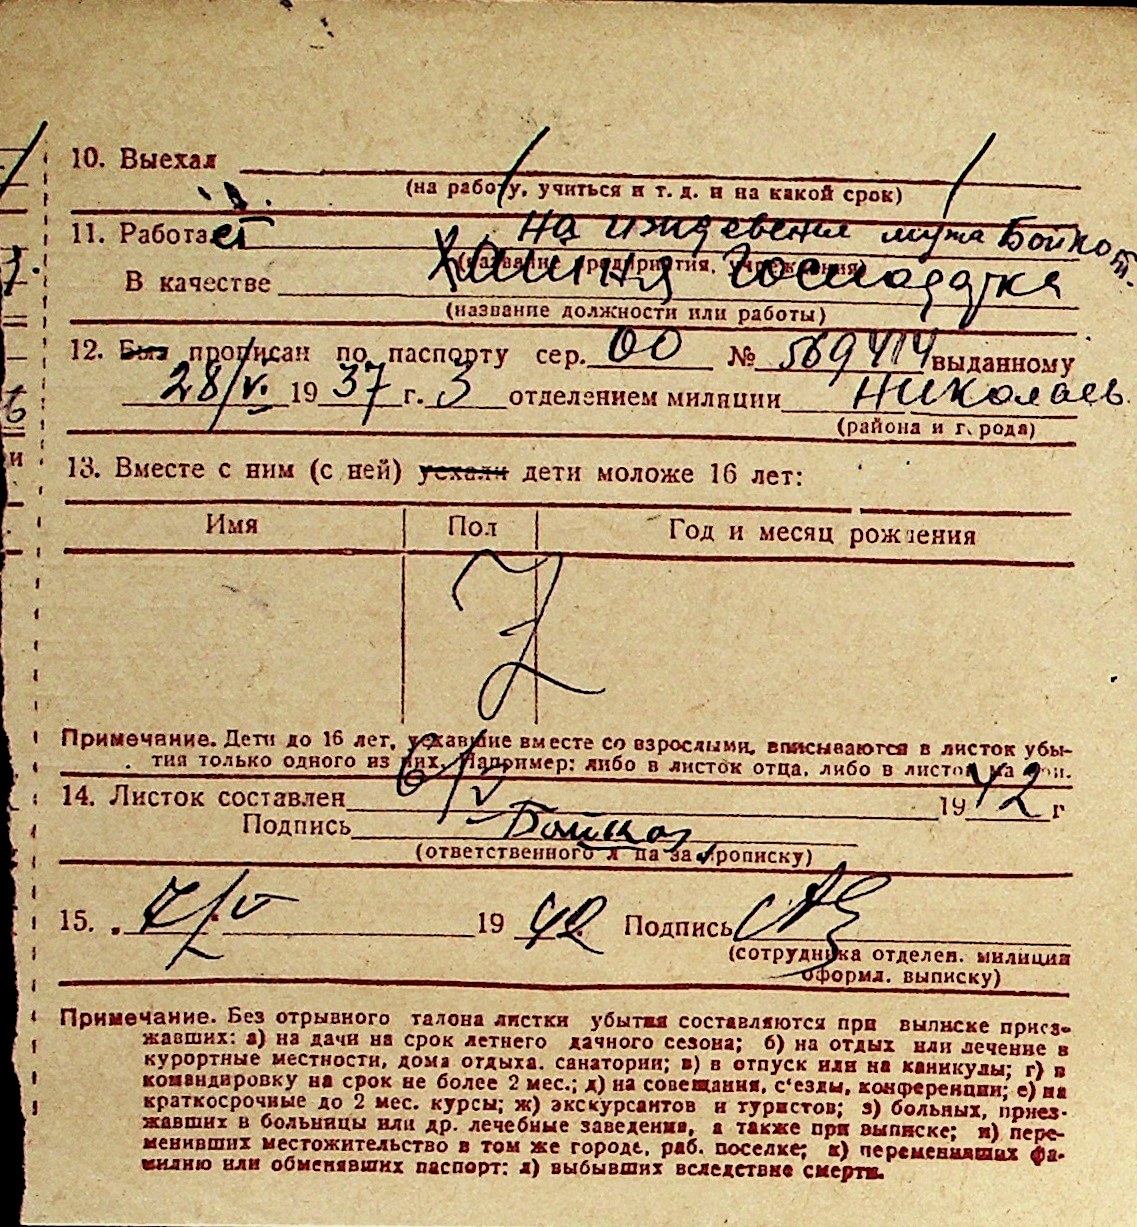 10. Выехал
(на работу, учиться и т. д. и на какой срок)
11. Работает на иждевении мужа Бойко
(название предприятия, учреждения)
В качестве
(название должности или работы)
12. Был прописан по паспорту сер. ОО № 569414 выданному
28/V. 1937 г. 3 отделением милиции Николаев.
(района и города)
13. Вместе с ним (с ней) уехали дети моложе 16 лет:
Имя Пол Год и месяц рождения
Z
Примечание. Дети до 16 лет, уехавшие вместе со взрослыми, вписываются в листок убы-
тия только одного из них. Например: либо в листок отца, либо в листок ма ери.
14. Листок составлен 6/V 1942 г
Подпись
(ответственного л ца за прописку)
15. 7/V 1942 Подпись
(сотрудника отделен. милиции
оформл. выписку)
Примечание. Без отрывного талона листки убытия составляются при выписке приез-
жавших: а) на дачи на срок летнего дачного сезона; б) на отдых или лечение в
курортные местности, дома отдыха, санатории; в) в отпуск или на каникулы; г) в
командировку на срок не более 2 мес.; д) на совещания, с'езды, конференции; е) на
краткосрочные до 2 мес. курсы; ж) экскурсантов и туристов; з) больных, приез-
жавших в больницы или др. лечебные заведения, а также при выписке; и) пере-
менивших местожительство в том же городе, раб. поселке; к) переменивших фа-
милию или обменявших паспорт: л) выбывших вследствие смерти.